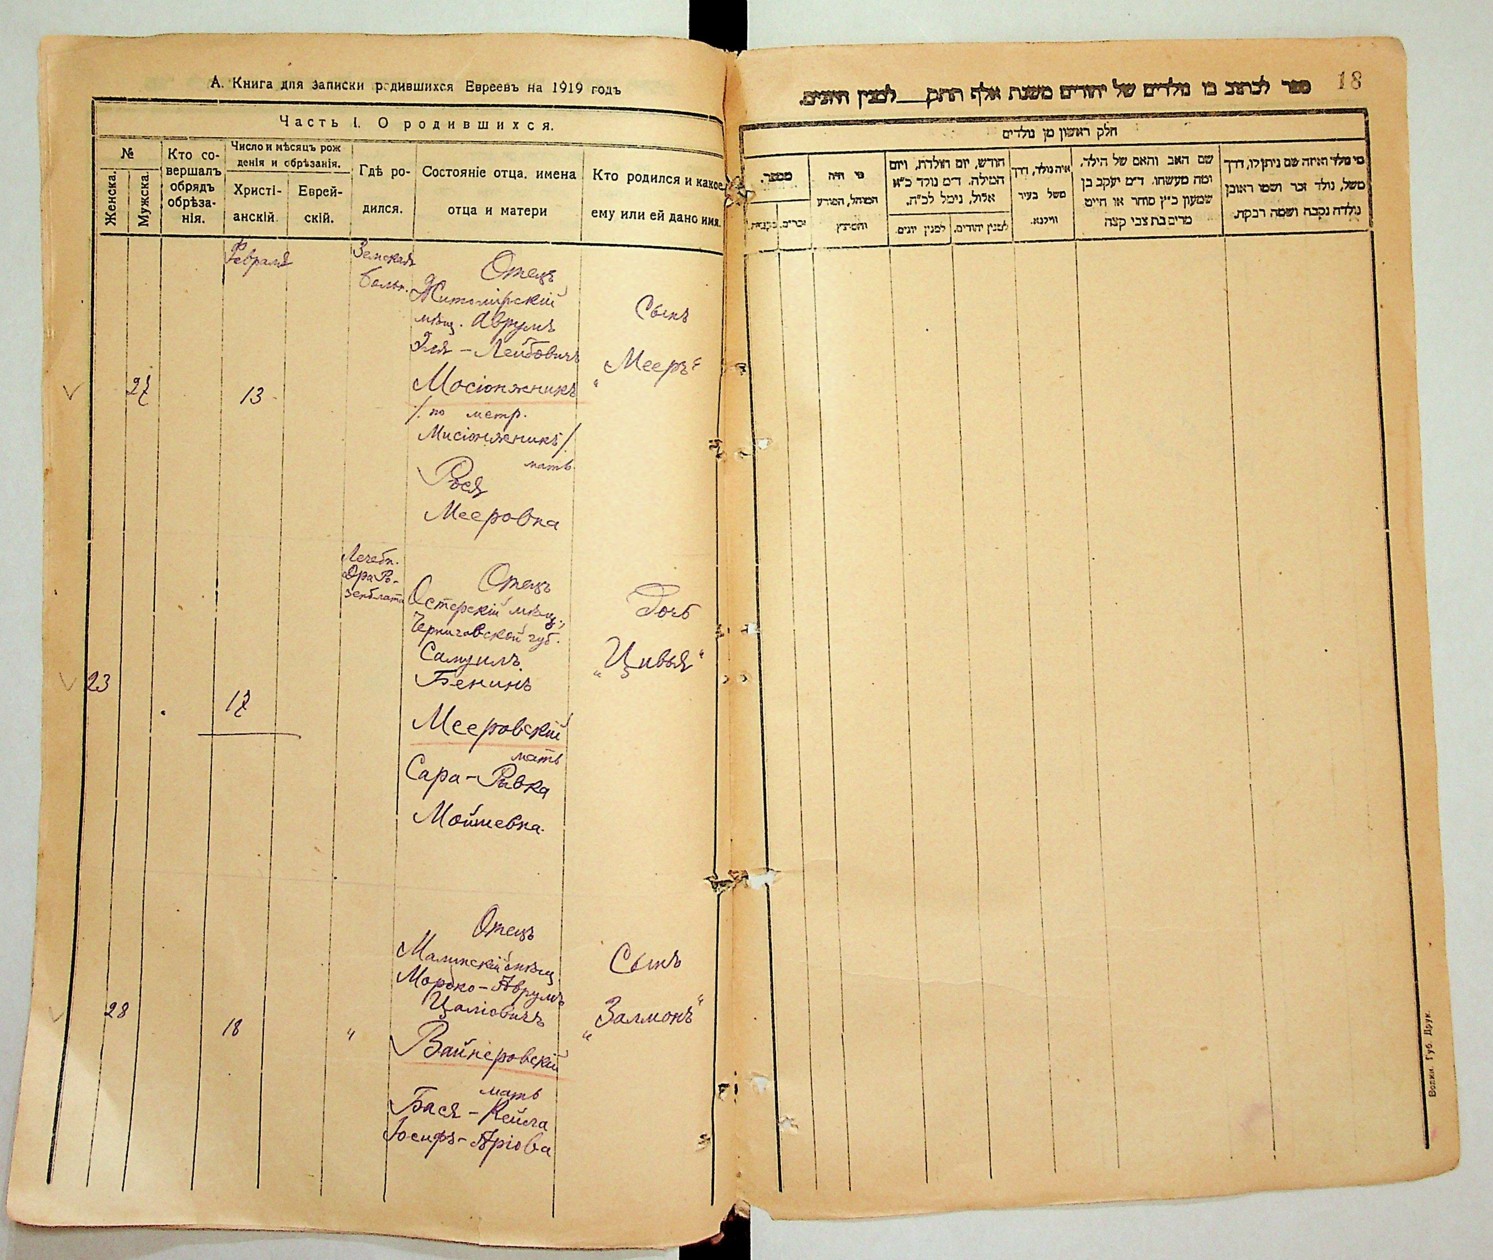 А. Книга для записки родившихся Евреевъ на 1919 годъ
Часть I. О родившихся.
№
Женска.
Мужска.
Кто со-
вершалъ
обрядъ
обрѣза-
нія.
Число и мѣсяцъ рож
денія и обрѣзанія.
Христі-
анскій.
Еврей-
скій.
Гдѣ ро-
дился.
Состояніе отца, имена
отца и матери
Кто родился и какое
ему или ей дано имя.
Февраля
Земская
больн.
27
13
Отецъ
Житомірскій
мѣщ. Аврумъ
Эля-Лейбовичъ
Мосіонжникъ
/по метр.
Мисіонжникъ/
мать
Рося
Мееровна
Сынъ
„Мееръ“
23
17
Лечебн.
Д-ра Ро-
зенблата
Отецъ
Остерскій мѣщ.,
Черниговской губ.
Самуилъ
Бенинъ
Мееровскій
мать
Сара-Рывка
Мойшевна.
Дочь
„Цивья“
28
18
"
Отецъ
Малинскій мѣщ
Мордко-Аврумъ
Цаліовичъ
Вайнеровскій
мать
Бася-Кейла
Іосифъ-Аріова
Сынъ
„Залмонъ“
18
ספר לכתוב בו נולדים של יהודים משנת אלף תתק__ למנין היונים.
חלק ראשון מן נולדים
מספר.
זכרים.
נקבות.
מי היה
המוהל, הפורע
והמוצץ
חודש, יום הולדת, ויום
המילה. ד״מ נולד כ״א
אלול, נימל לכ״ח.
למנין יהודים.
למנין יונים.
איה נולד, דרך
משל בעיר
ווילנא.
שם האב והאם של הילד,
ומה מעשהו. ד״מ יעקב בן
שמעון כ״ץ סוחר או חייט
מרים בת צבי קצה
מי נולד ואיזה שם ניתן לו, דרך
משל, נולד זכר ושמו ראובן
נולדה נקבה ושמה רבקה.
Волын. Губ. Друк.